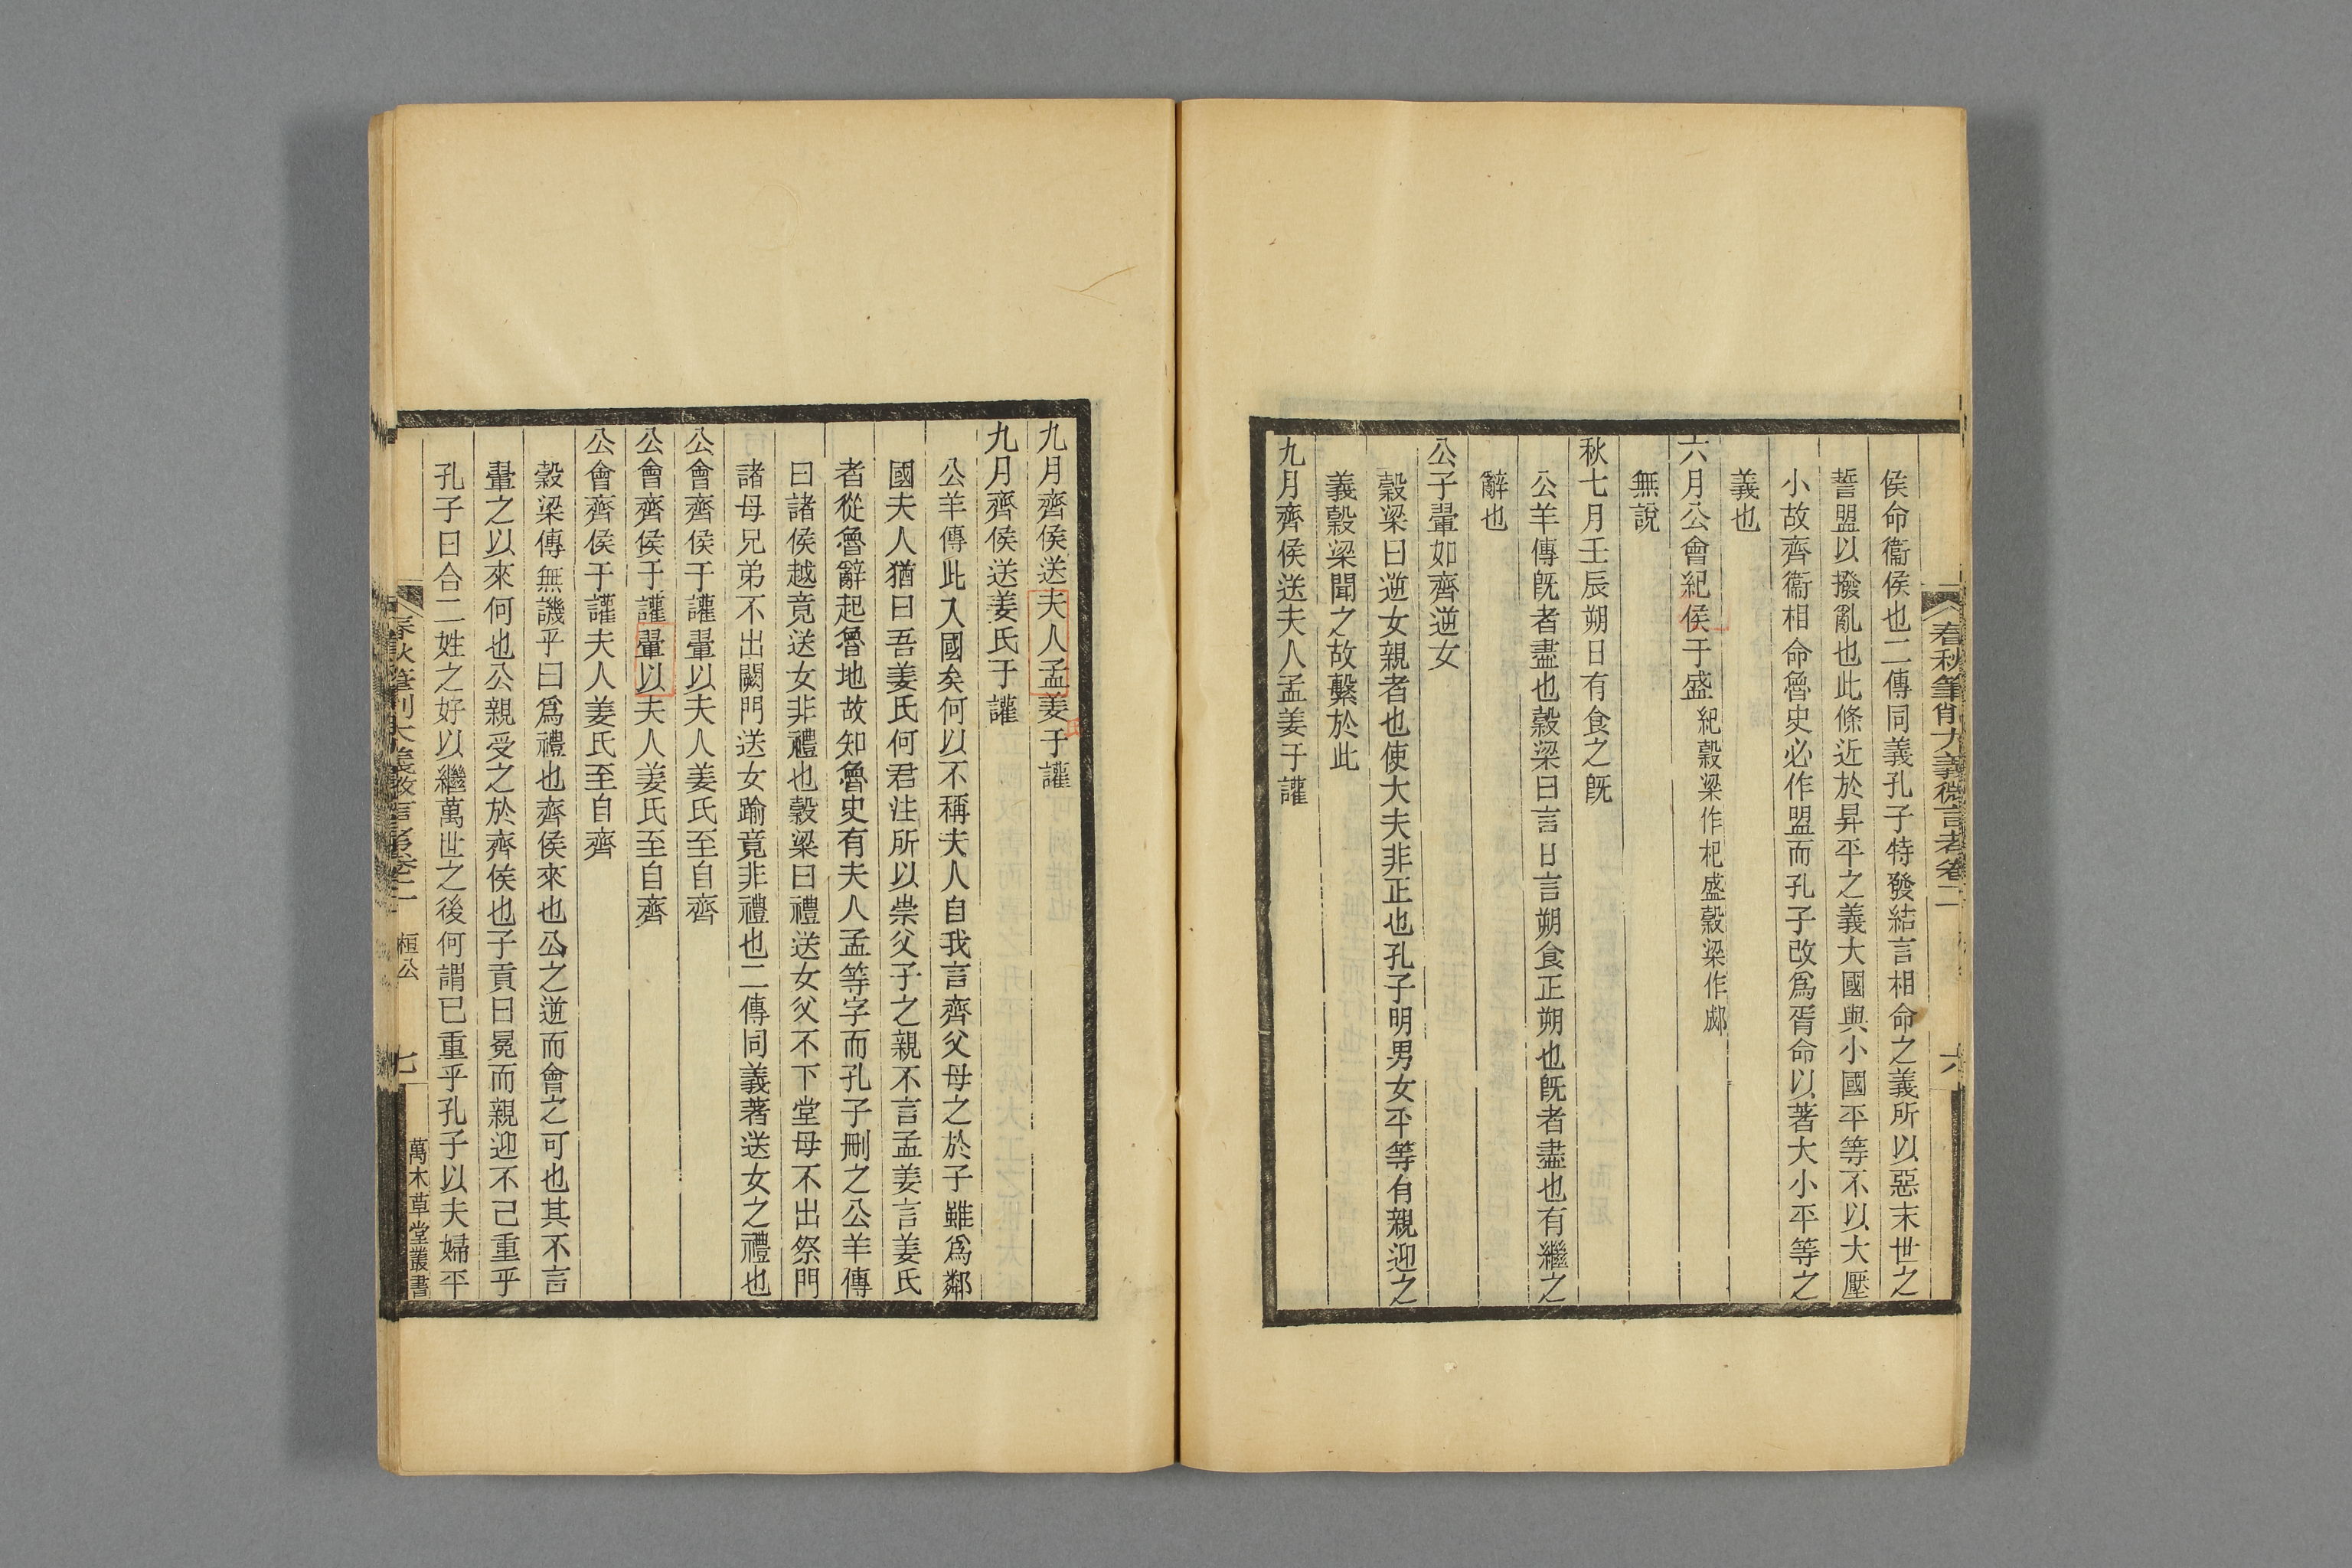 春秋筆削大義微言考卷二
六
侯命衞侯也二傳同義孔子特發結言相命之義所以惡末世之
誓盟以撥亂也此條近於昇平之義大國與小國平等不以大壓
小故齊衞相命魯史必作盟而孔子改爲胥命以著大小平等之
義也
六月公會紀侯于盛紀穀梁作杞盛穀梁作郕
無說
秋七月壬辰朔日有食之旣
公羊傳旣者盡也穀梁曰言日言朔食正朔也旣者盡也有繼之
辭也
公子翬如齊逆女
穀梁曰逆女親者也使大夫非正也孔子明男女平等有親迎之
義穀梁聞之故繫於此
九月齊侯送夫人孟姜于讙
九月齊侯送夫人孟姜于讙
氏
九月齊侯送姜氏于讙
公羊傳此入國矣何以不稱夫人自我言齊父母之於子雖爲鄰
國夫人猶曰吾姜氏何君注所以崇父子之親不言孟姜言姜氏
者從魯辭起魯地故知魯史有夫人孟等字而孔子刪之公羊傳
曰諸侯越竟送女非禮也穀梁曰禮送女父不下堂母不出祭門
諸母兄弟不出闕門送女踰竟非禮也二傳同義著送女之禮也
公會齊侯于讙翬以夫人姜氏至自齊
公會齊侯于讙翬以夫人姜氏至自齊
公會齊侯于讙夫人姜氏至自齊
穀梁傳無譏乎曰爲禮也齊侯來也公之逆而會之可也其不言
翬之以來何也公親受之於齊侯也子貢曰冕而親迎不已重乎
孔子曰合二姓之好以繼萬世之後何謂已重乎孔子以夫婦平
春秋筆削大義微言考卷二
桓公
七
萬木草堂叢書